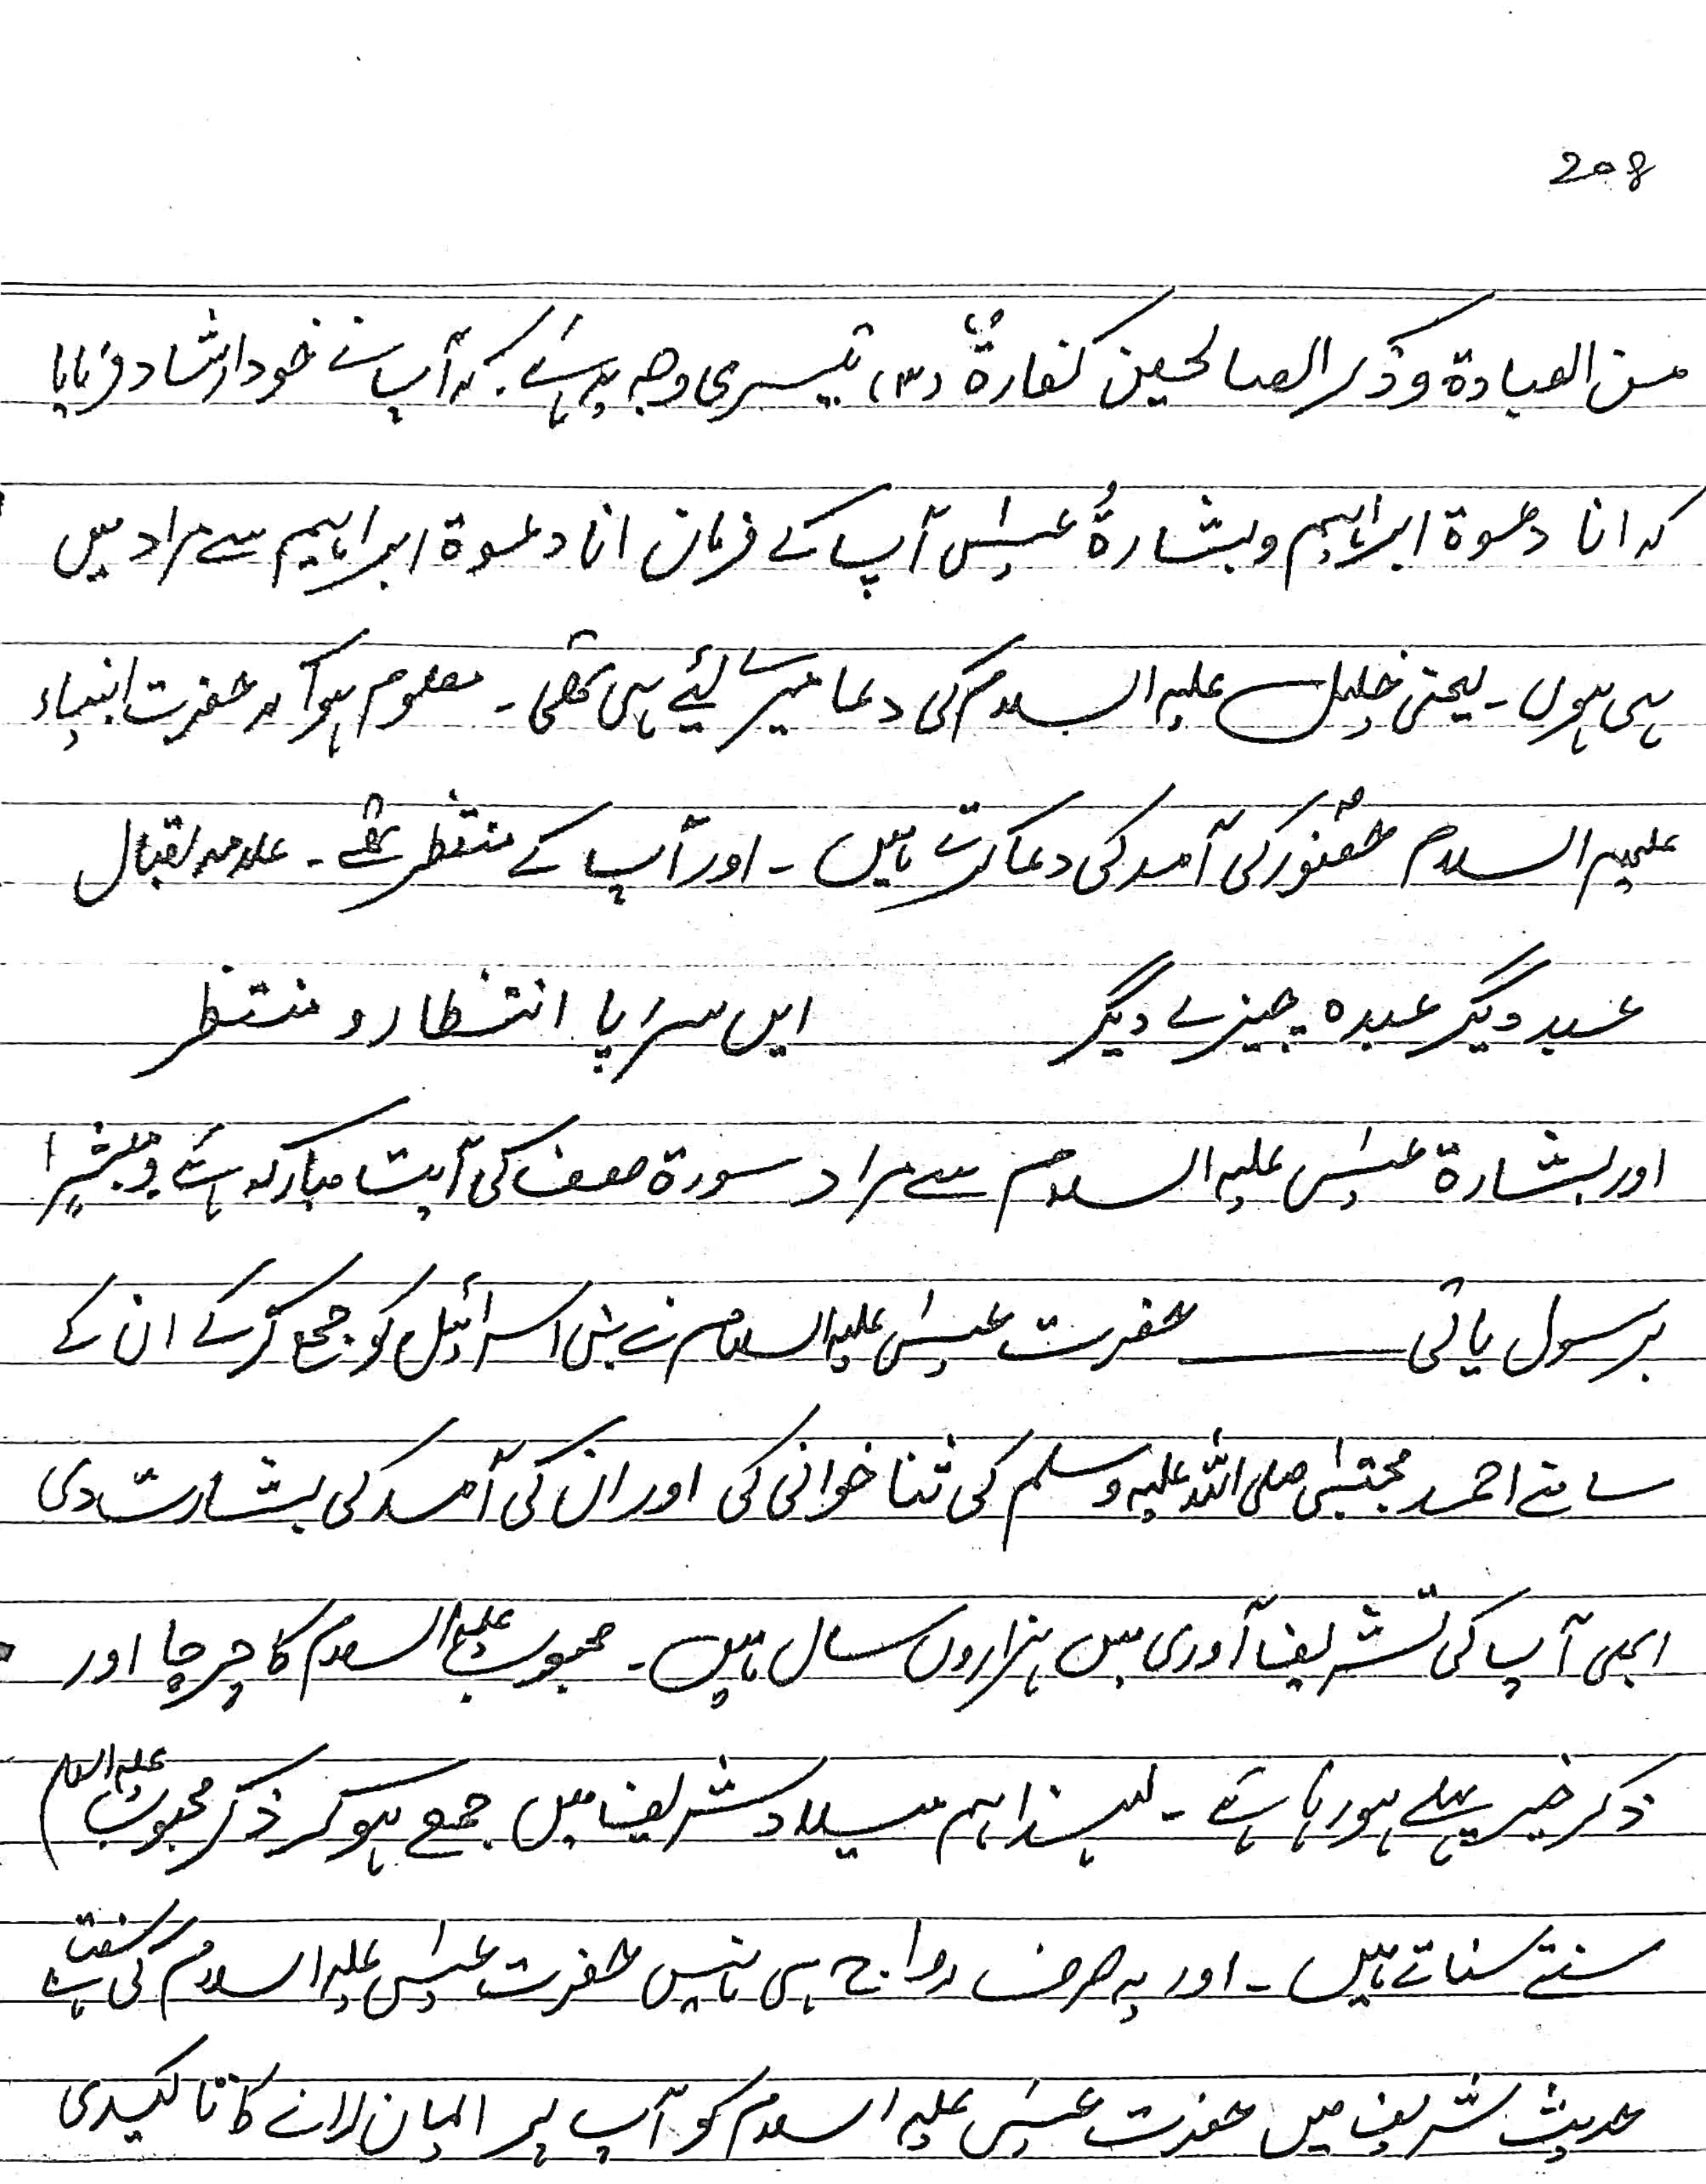 208
من العبادة وذكر الصالحين كفارةٌ (۳) تیسری وجہ یہ ہے کہ آپ نے خود ارشاد فرمایا
کہ انا دعوة ابراہیم وبشارةُ عیسٰی آپ کے فرمان انا دعوة ابراہیم سے مراد میں
ہی ہوں ۔ یعنی خلیل علیہ السلام کی دعا میرے لئیے ہی تھی ۔ معلوم ہوا کہ حضرت انبیاء
علیہم السلام حضور کی آمد کی دعا کرتے ہیں ۔ اور آپ کے منتظر تھے ۔ علامہ اقبال
عبد دیگر عبدہ چیزے دیگر ایں سراپا انتظار و منتظر
اور بشارة عیسٰی علیہ السلام سے مراد سورة صف کی آیت مبارکہ ہے ومبشرا
برسول یاتی ــــــ حضرت عیسٰی علیہ السلام نے بنی اسرائیل کو جمع کر کے ان کے
سامنے احمد مجتبٰی صلی اللہ علیہ وسلم کی ثنا خوانی کی اور ان کی آمد کی بشارت دی
ابھی آپ کی تشریف آوری میں ہزاروں سال ہیں ۔ محبوب علیہ السلام کا چرچا اور
ذکر خیر پہلے ہو رہا ہے ۔ لہذا ہم میلاد شریف میں جمع ہو کر ذکر محبوب علیہ السلام
سنتے سناتے ہیں ۔ اور یہ صرف رواج ہی نہیں حضرت عیسٰی علیہ السلام کی سنت ہے
حدیث شریف میں حضرت عیسٰی علیہ السلام کو آپ پر ایمان لانے کا تاکیدی